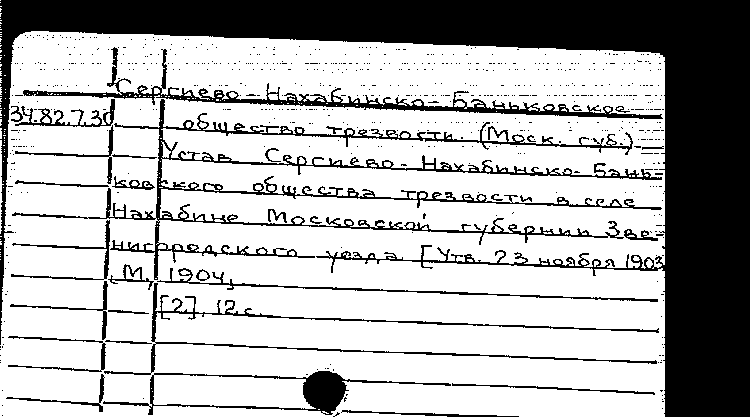 Сергиево-Нахабинско-Баньковское
34.82.7.30 общество трезвости. (Моск. губ.)
Устав Сергиево-Нахабинско-Бань-
ковского общества трезвости в селе
Нахабине Московской губернии Зве-
нигородского уезда [Утв. 23 ноября 1903
М, 1904,
[2], 12 с.